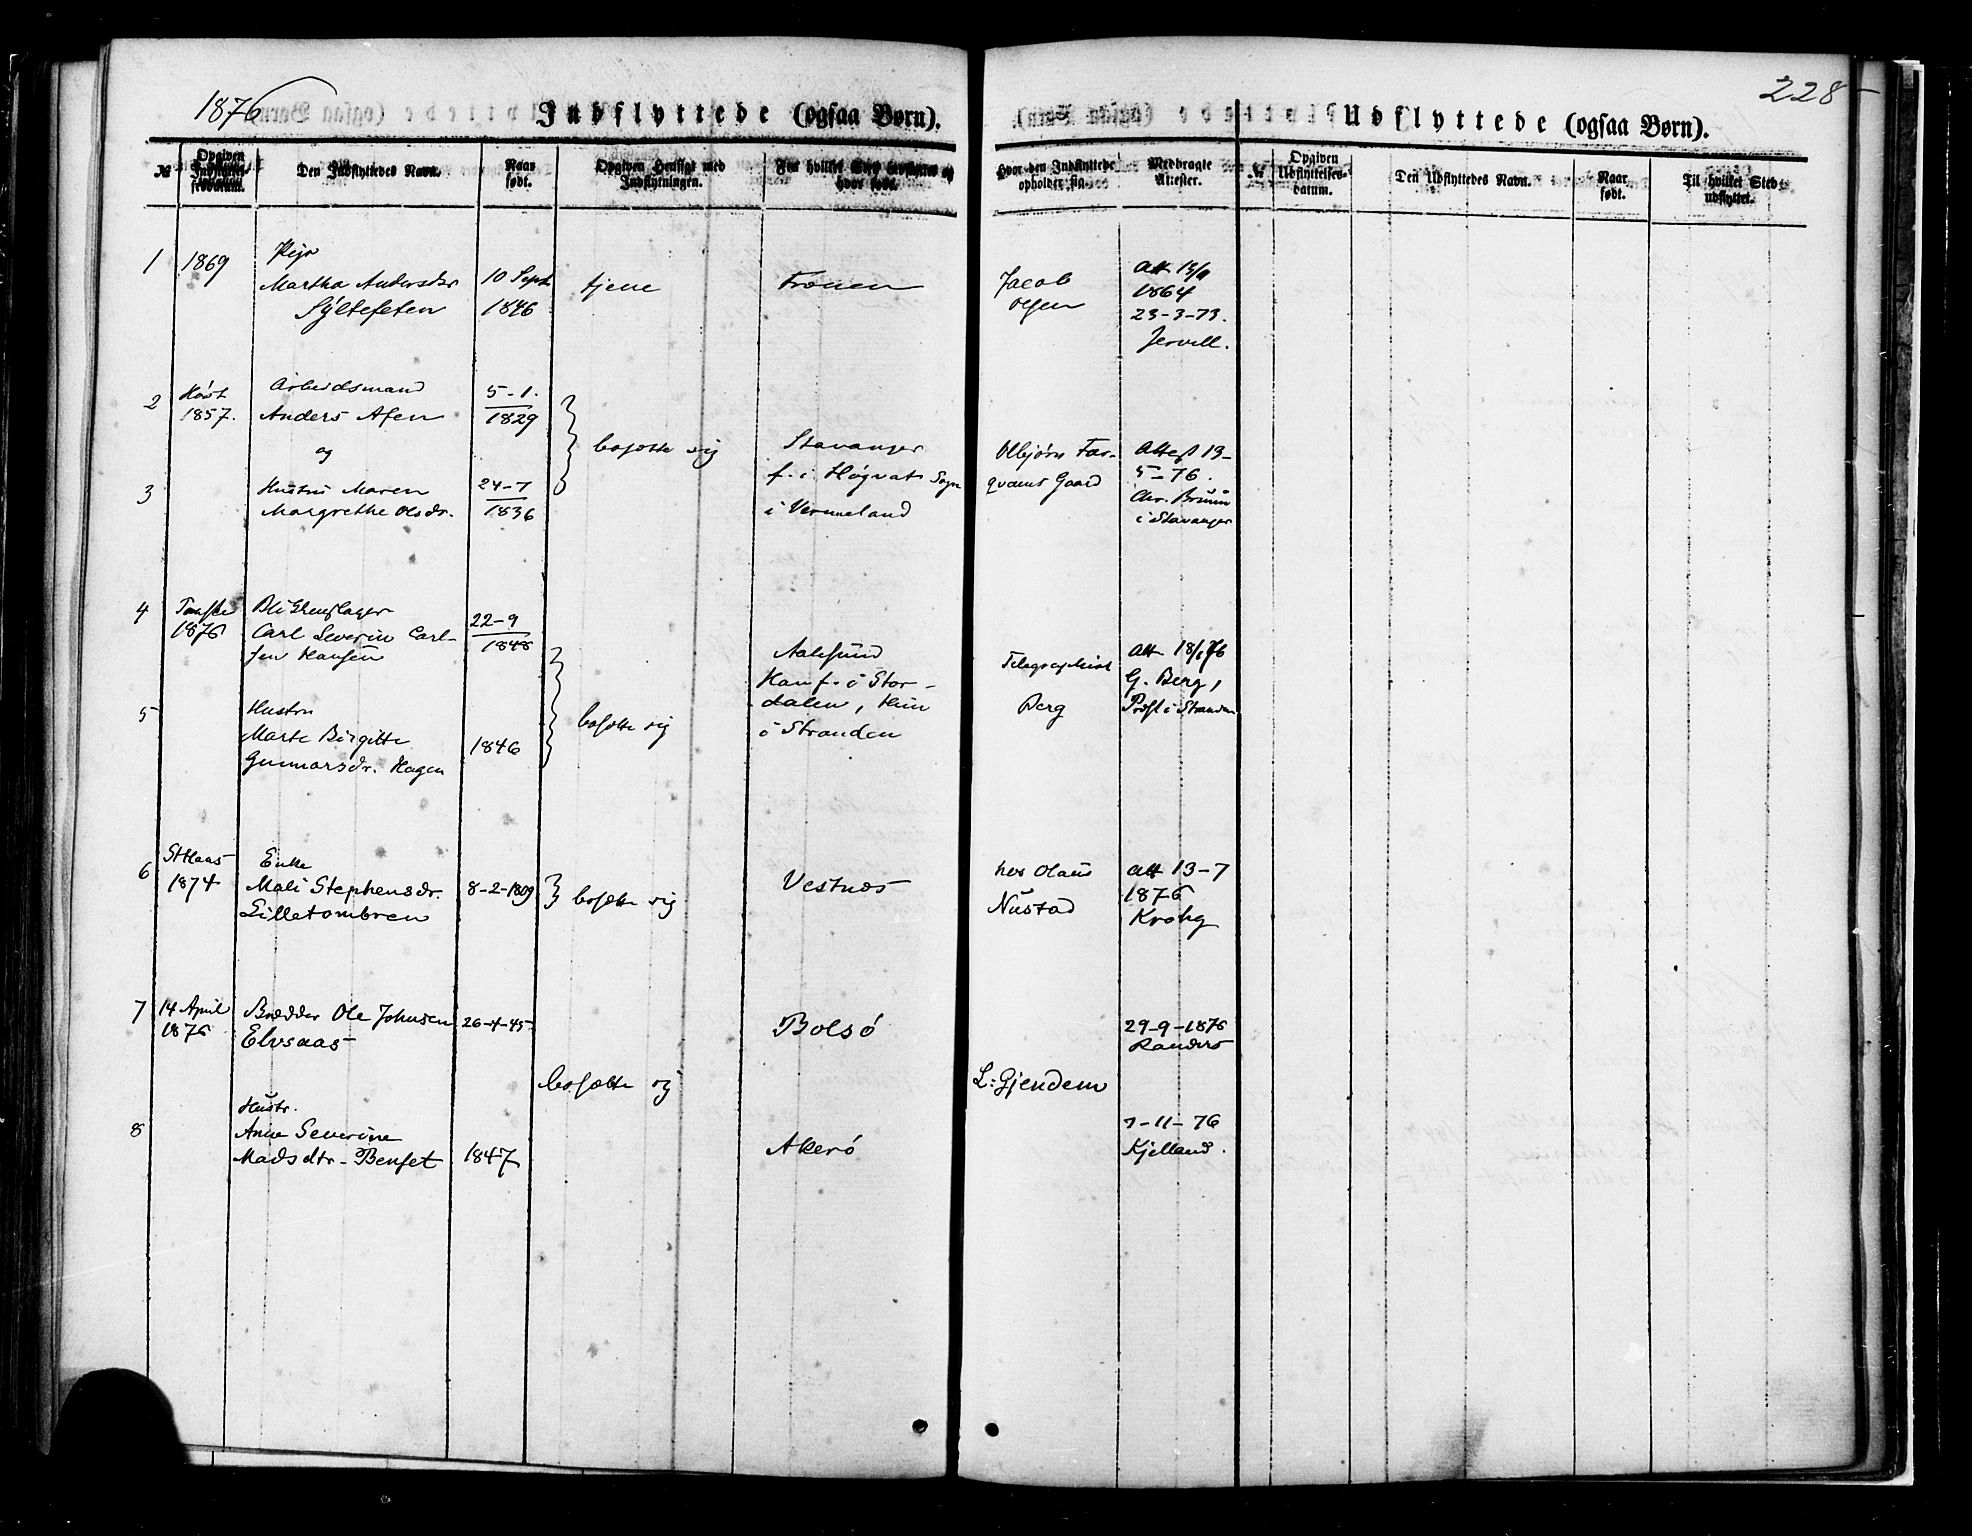 1876
Indflyttede (ogsaa Børn).
№
Opgiven Indflyttelsesdatum.
Den Indflyttedes Navn.
Naar født.
Opgiven Hensigt med Indflytningen.
Fra hvilket Sted indflyttet og hvor født.
228
Udflyttede (ogsaa Børn).
Hvor den Indflyttede opholder sig.
Medbragte Attester.
№
Opgiven Udflyttelsesdatum.
Den Udflyttedes Navn.
Naar født.
Til hvilket Sted udflyttet.
1
1869
Pige
Martha Andersdtr
Sylteseten
10 Sept
1846
tjene
Frænen
Jacob
Olsen
Att
1864
23-3-73.
Jervell.
2
Høst
1857.
Arbeidsmand
Anders
og
5-1.
1829
3
Hustru Maren
Margrethe Olsdr.
24-7
1836
bosætte sig
Stavanger
f. i Høgvats Sogn
i Vermeland
Olbjørn Far-
qvams Gaard
Attest 13-
5-76.
Chr. Bruun
i Stavanger
4
1876
Blikkenslager
Carl Severin Carl-
sen Hansen
22-9
1848
5
Hustru
Marte Birgitte
Gunnarsdr. Hagen
1846
bosætte sig
Aalesund
Han f. i Stor-
dalen, Hun
i Stranden
Telegraphist
Berg
Att 18/1 76
G. Berg,
Provst i Stranden
6
St Haas
1874
Enke
Mali Stephensdr.
Lilletombren
8-2-1809
bosætte sig
Vestnæs
hos Olaus
Nustad
Att 13-7
1876
Krohg
7
14 April
1876
Ole Johnsen
Elvsaas
26-4-45
Bolsø
29-9-1876
Randers
bosætte sig
L: Gjendem
8
Hustr.
Anne Severine
Madsdtr. Bendset
1847
Akerø
7-11-76
Kjelland.